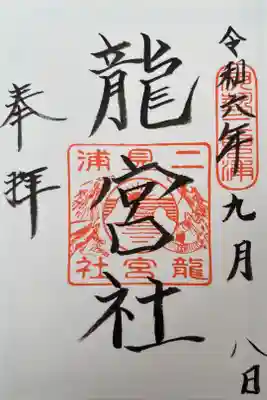 令和六年九月八日
龍宮社
二見浦
龍宮社
奉拝